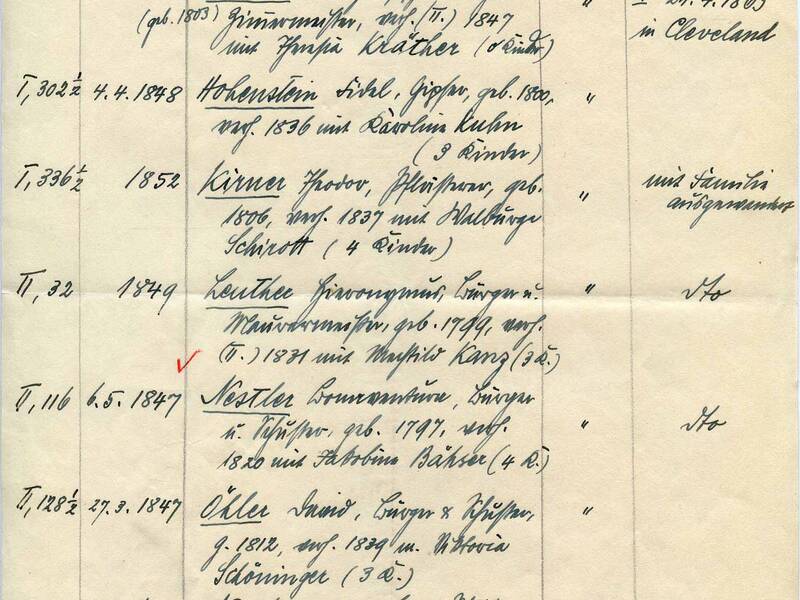 (geb. 1803) Zimmermeister, verh. (II.) 1847
mit Theresia Kräther (8 Kinder)
in Cleveland
I, 302½ 4.4.1848 Hohenstein Fidel, Gipser, geb. 1800, "
verh. 1836 mit Karoline Kuhn
(3 Kinder)
I, 336½ 1852 Kirner Theodor, Pflästerer, geb. " mit Familie
1806, verh. 1837 mit Walburga ausgewandert
Schirott (4 Kinder)
II, 32 1849 Leuther Hieronymus, Bürger u. " dto
Maurermeister, geb. 1799, verh.
(II.) 1831 mit Mechtild Kanz (3 K.)
II, 116 6.5.1847 Nestler Bonaventura, Bürger " dto
u. Schuster, geb. 1797, verh.
1820 mit Jakobine Bähser (4 K.)
II, 128½ 27.3.1847 Öhler David, Bürger & Schuster, "
g. 1812, verh. 1839 m. Viktoria
Schöninger (3 K.)